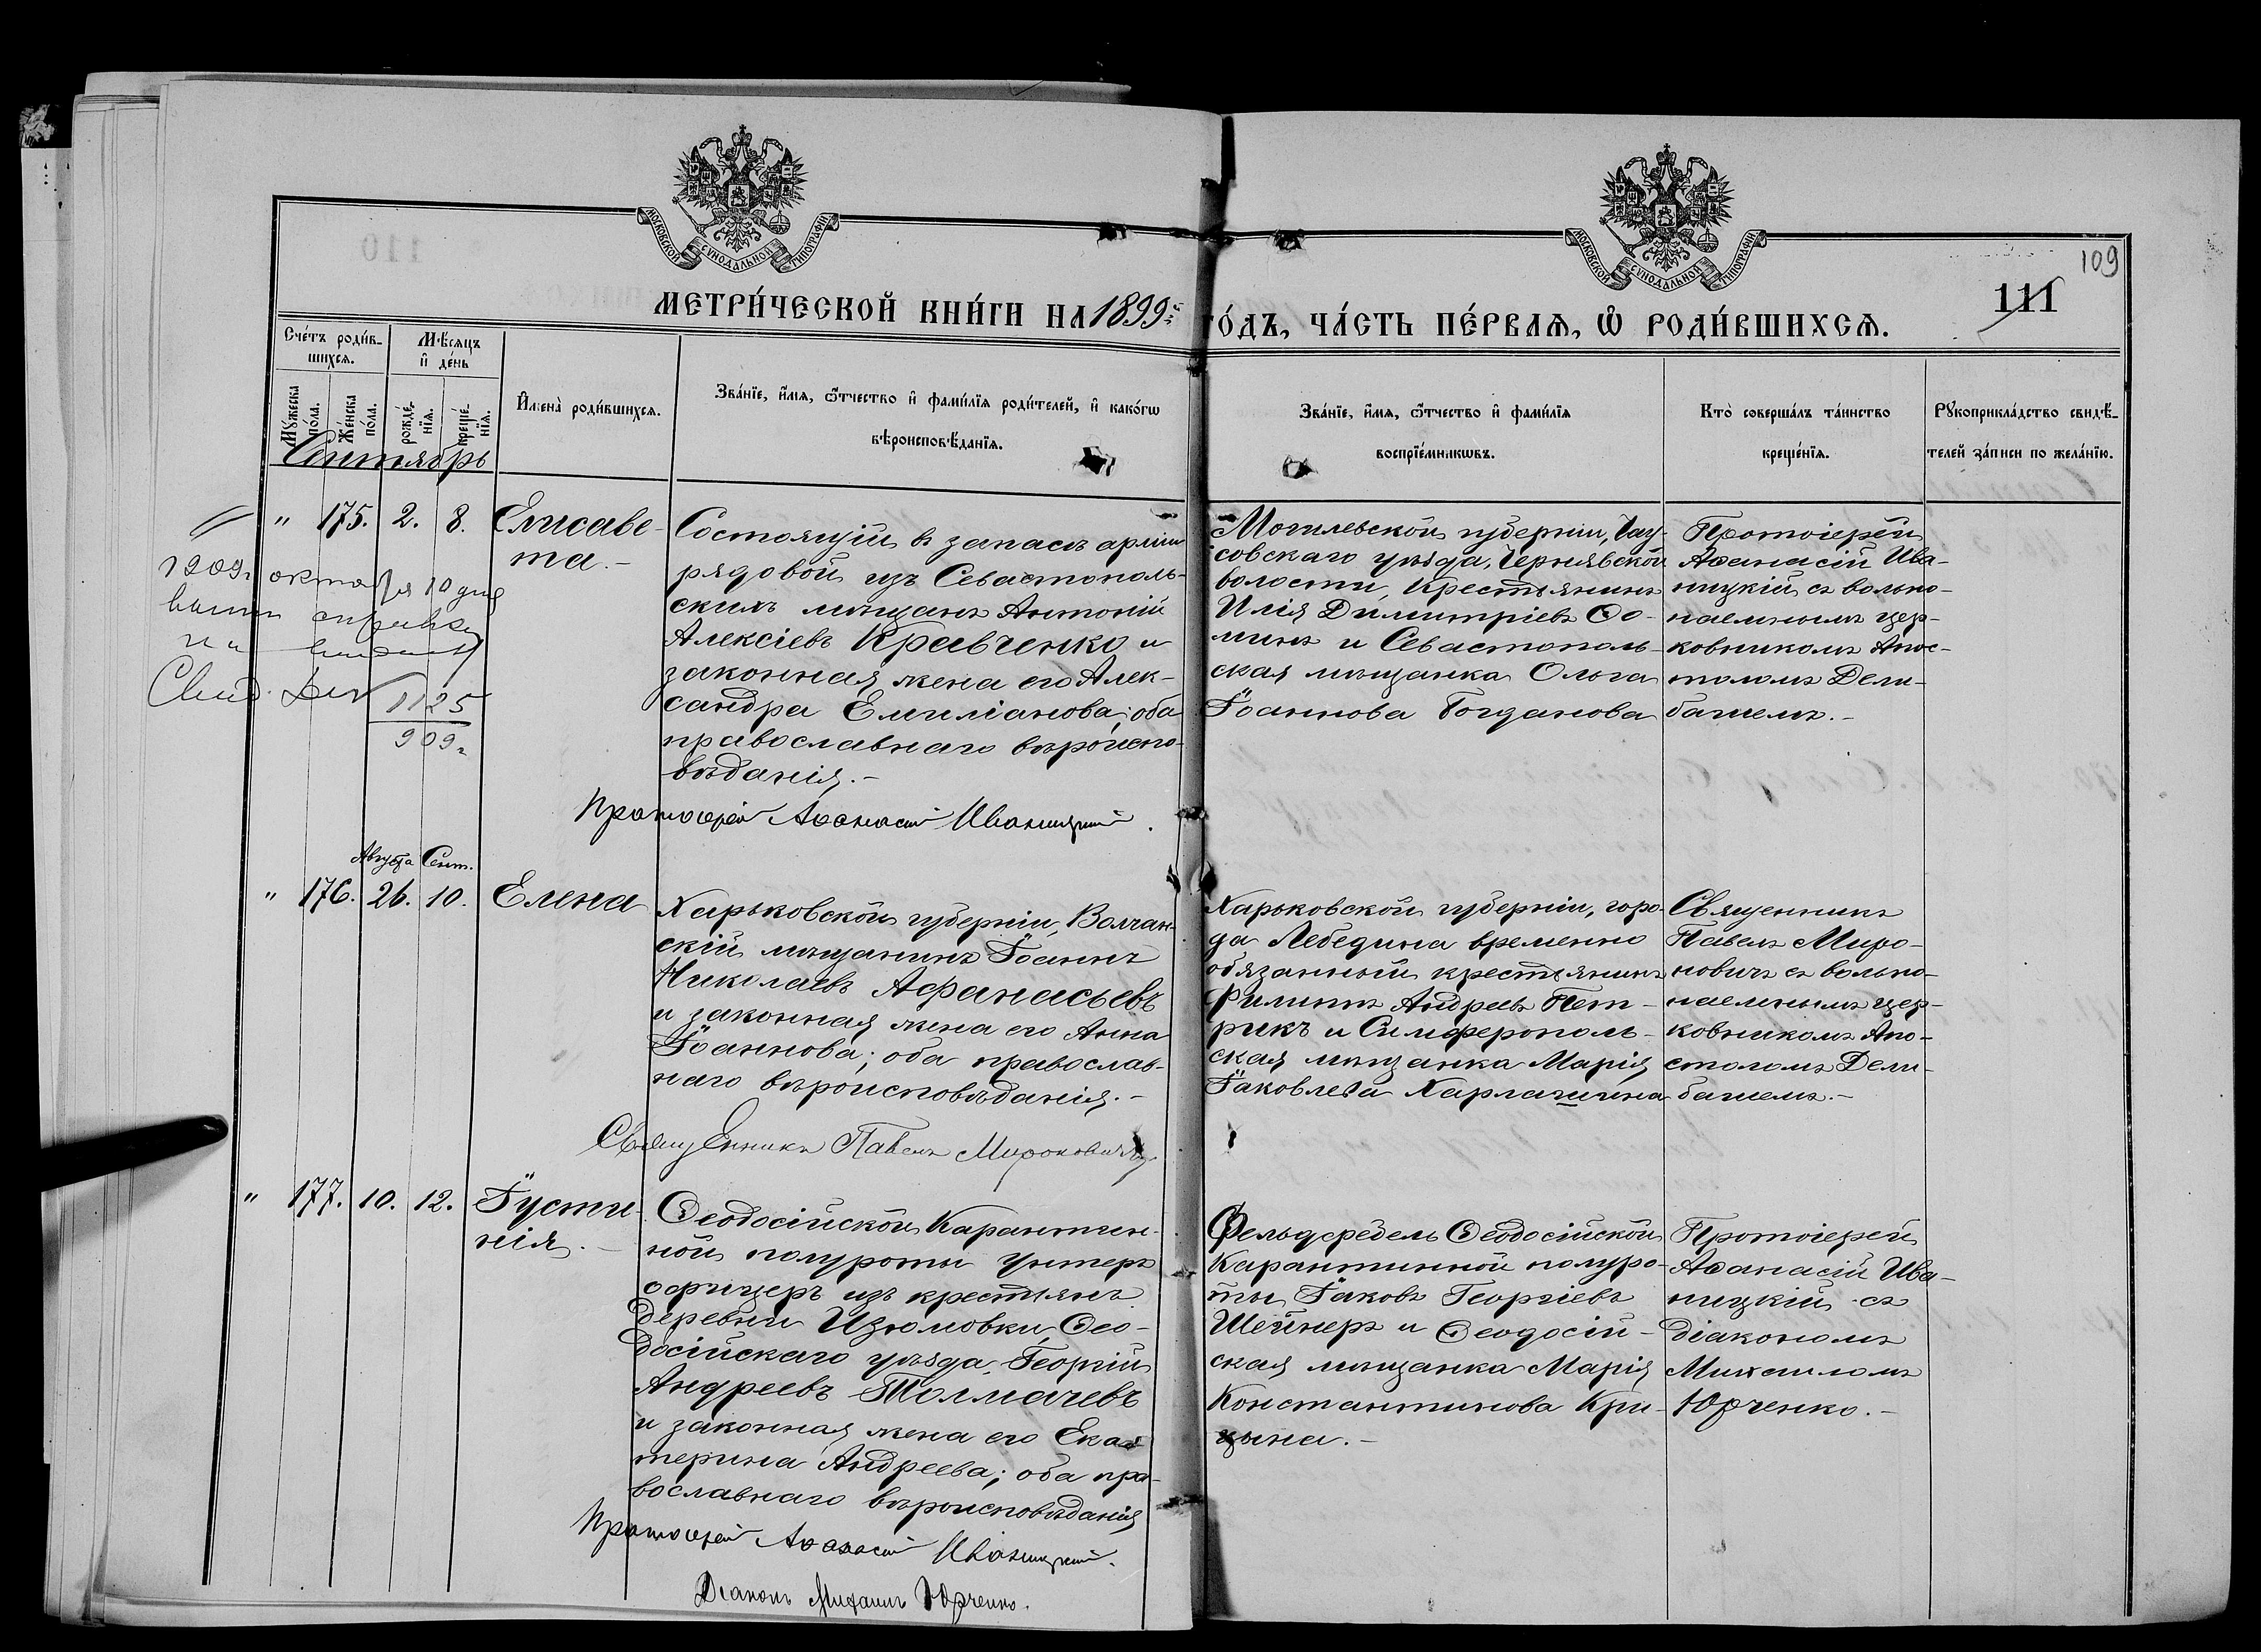 МОСКОВСКОЙ СѴНОДАЛЬНОЙ ТИПОГРАФІИ
МОСКОВСКОЙ СѴНОДАЛЬНОЙ ТИПОГРАФІИ
109
111
МЕТРИ́ЧЕСКОЙ КНИ́ГИ НА 1899 й ГО́ДЪ, ЧА́СТЬ ПЕ́РВАЯ, Ѡ҆ РОДИ́ВШИХСЯ.
Сче́тъ роди́в-
шихся.
Мѣ́сяцъ
и҆ де́нь
Мꙋ́жеска
по́ла.
Же́нска
по́ла.
рожде́-
нїя.
креще́-
нїя.
И҆мена̀ роди́вшихся.
Зва́нїе, и҆́мя, ѻ҆́тчество и҆ фами́лїя роди́телей, и҆ како́гѡ
вѣроисповѣ́данїя.
Зва́нїе, и҆́мя, ѻ҆́тчество и҆ фами́лїя
воспрїе́мникѡвъ.
Кто̀ соверша́лъ та́инство
креще́нїя.
Рꙋкоприкла́дство свидѣ́-
телей за́писи по жела́нїю.
Сентябрь
" 175. 2. 8. Елисаве-
та.-
Состоящій въ запасѣ арміи
рядовой изъ Севастополь-
скихъ мѣщанъ Антоній
Алексіевъ Кравченко и
законная жена его Алек-
сандра Емиліанова; оба
православнаго вѣроиспо-
вѣданія.-
Могилевской губерніи, Чау-
совскаго уѣзда, Чернявской
волости, крестьянинъ
Илія Димитріевъ Ѳо-
минъ и Севастополь-
ская мѣщанка Ольга
Іоаннова Богданова
Протоіерей
Аѳанасій Ива-
ницкій съ вольно-
наемнымъ цер-
ковникомъ Апос-
толомъ Дели-
башемъ.-
1909 г октября 10 дня
Свид.
1125
909 г
Протоіерей Аѳанасій Иваницкій.
Августа Сент.
" 176. 26. 10. Елена
Харьковской губерніи, Волчан-
скій мѣщанинъ Іоаннъ
Николаевъ Афанасьевъ
и законная жена его Анна
Іоаннова; оба православ-
наго вѣроисповѣданія.-
Харьковской губерніи, горо-
да Лебедина временно
обязанный крестьянинъ
Филиппъ Андреевъ Пет-
рикъ и Симферополь-
ская мѣщанка Марія
Іаковлева Харлашина
Священникъ
Павелъ Миро-
новичъ съ вольно-
наемнымъ цер-
ковникомъ Апо-
столомъ Дели-
башемъ.-
Священникъ Павелъ Мироновичъ
" 177. 10. 12. Іусти-
нія.-
Ѳеодосійской Карантин-
ной полуроты унтеръ
офицеръ изъ крестьянъ
деревни Изюмовки, Ѳео-
досійскаго уѣзда, Георгій
Андреевъ Толмачевъ
и законная жена его Ека-
терина Андреева; оба пра-
вославнаго вѣроисповѣданія
Фельдфебель Ѳеодосійской
Карантинной полуро-
ты, Іаковъ Георгіевъ
Шейнеръ и Ѳеодосій-
ская мѣщанка Марія
Константинова Кри-
цына.-
Протоіерей
Аѳанасій Ива-
ницкій съ
діакономъ
Михаиломъ
Юрченко.-
Протоіерей Аѳанасій Иваницкій.
Діаконъ Михаилъ Юрченко.